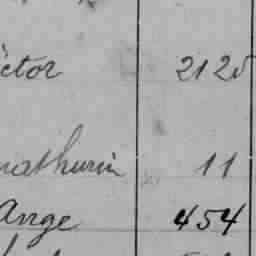 ictor 2125
mathurin 11
Ange 454